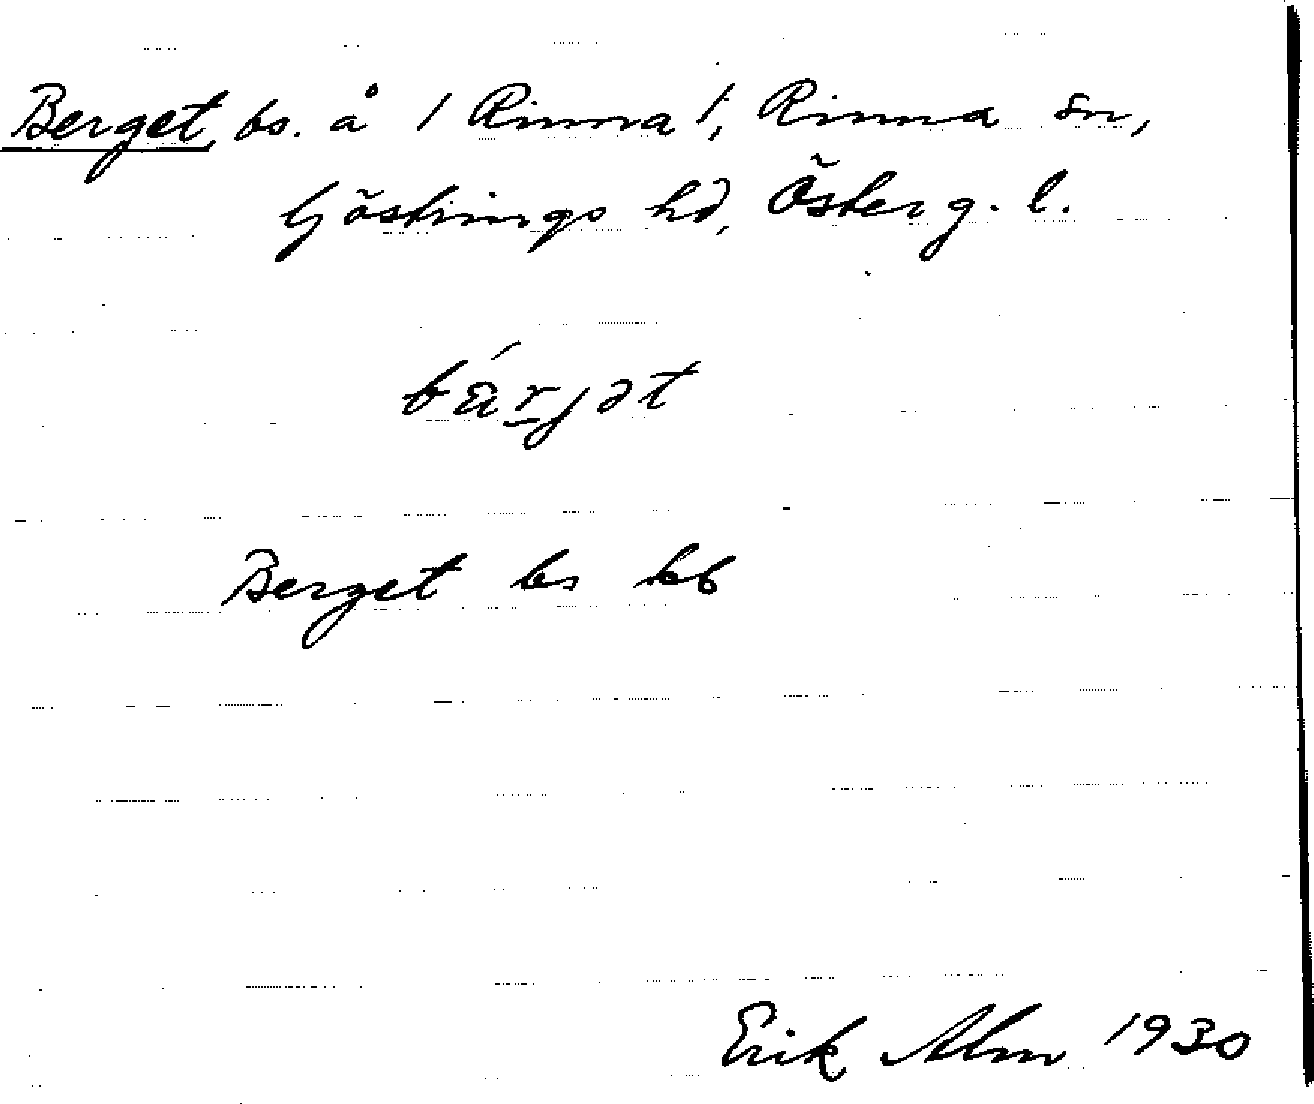 Berget, bs. å / Rinna /, Rinna sn,
Göstrings hd, Österg. l.
bä́rjət
Berget bs kb
Erik Alm 1930